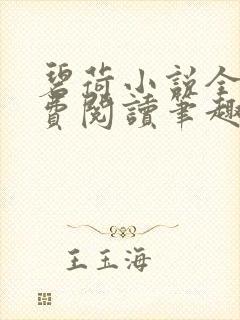 碧荷小說全
費閱讀筆趣
王玉海